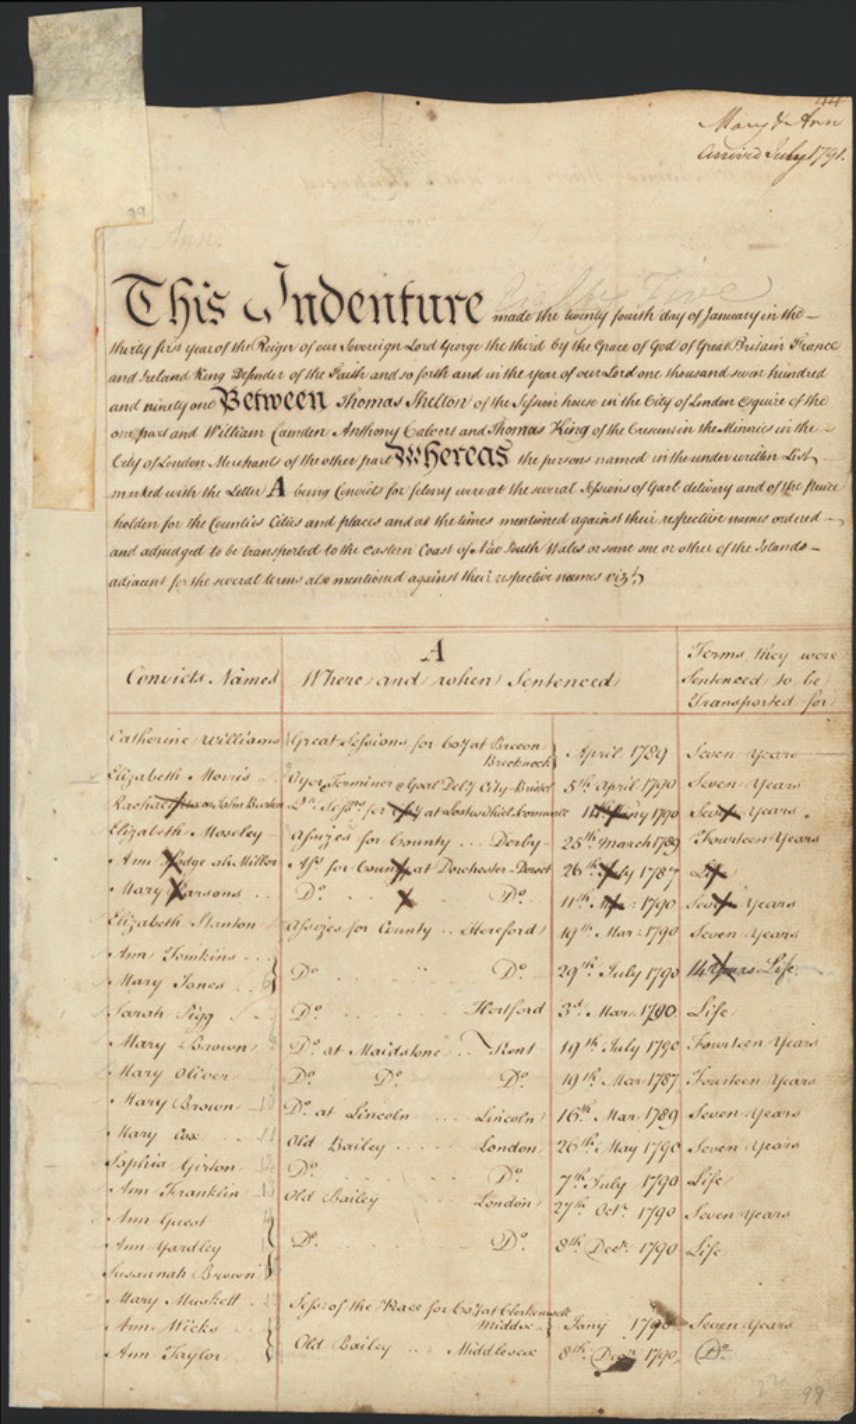 Mary & Ann
arrived July 1791.
99
This Indenture made the twenty fourth day of January in the
thirty first year of the Reign of our Sovereign Lord George the third by the Grace of God of Great Britain France
and Ireland King Defender of the Faith and so forth and in the year of our Lord one thousand seven hundred
and ninety one Between Thomas Shelton of the Session house in the City of London Esquire of the
one part and William Camden Anthony Calvert and Thomas King of the Crescent in the Minories in the
City of London Merchants of the other part Whereas the persons named in the under written List
marked with the Letter A being Convicts for felony were at the several Sessions of Gaol delivery and of the peace
holden for the Counties Cities and places and at the times mentioned against their respective names ordered
and adjudged to be transported to the Eastern Coast of New South Wales or some one or other of the Islands
adjacent for the several terms also mentioned against their respective names vizt.
A
Convicts Names Where and when Sentenced Terms they were Sentenced to be Transported for
Catherine Williams Great Sessions for Coy at Brecon Brecknock April 1789 Seven Years
Elizabeth Morris Oyer Terminer & Gaol Dely City Bristol 5th April 1790 Seven Years
Rachael at Lostwithiel Cornwall 1790 Seven Years
Elizabeth Moseley Assizes for County Derby 25th March 1789 Fourteen Years
Ann als Miller Asss for County at Dorchester Dorset 26th July 1787 Life
Mary Parsons Do Do 11th 1790 Seven Years
Elizabeth Stanton Assizes for County Hereford 19th Mar 1790 Seven Years
Ann Tomkins
Mary Jones Do Do 29th July 1790 14 Years Life
Sarah Pigg Do Hertford 3d Mar 1790 Life
Mary Brown Do at Maidstone Kent 19th July 1790 Fourteen Years
Mary Oliver Do Do Do 19th Mar 1787 Fourteen Years
Mary Brown Do at Lincoln Lincoln 16th Mar 1789 Seven Years
Mary Cox Old Bailey London 26th May 1790 Seven Years
Sophia Girton Do Do 7th July 1790 Life
Ann Franklin Old Bailey London 27th Octr 1790 Seven Years
Ann Guest
Ann Yardley Do Do 8th Decr 1790 Life
Susannah Brown
Mary Muskett Sess: of the Peace for Coy at Clerkenwell Middx Jany Seven Years
Ann Wicks
Ann Taylor Old Bailey Middlesex 8th Decr 1790 Do
99